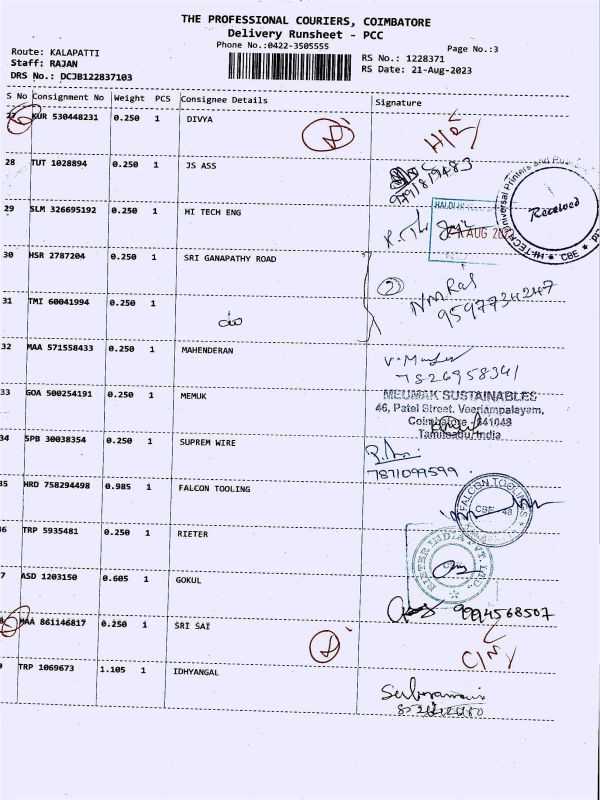 THE PROFESSIONAL COURIERS, COIMBATORE
Delivery Runsheet - PCC
Phone No.:0422-3505555
Page No.:3
Route: KALAPATTI
Staff: RAJAN
DRS No.: DCJB122837103
RS No.: 1228371
RS Date: 21-Aug-2023
S No Consignment No Weight PCS Consignee Details Signature
27 KUR 530448231 0.250 1 DIVYA
28 TUT 1028894 0.250 1 JS ASS
9791819483
29 SLM 326695192 0.250 1 HI TECH ENG
AUG
Received
CBE
30 HSR 2787204 0.250 1 SRI GANAPATHY ROAD
2
31 TMI 60041994 0.250 1
9597734247
32 MAA 571558433 0.250 1 MAHENDERAN
7826958341
33 GOA 500254191 0.250 1 MEMUK
MEUMAK SUSTAINABLES
46, Patel Street, Veeriampalayam,
Coimbatore - 641048
Tamilnadu, India
34 SPB 30038354 0.250 1 SUPREM WIRE
7871099599
35 HRD 758294498 0.985 1 FALCON TOOLING
FALCON TOOLINGS
CBE 48
6 TRP 5935481 0.250 1 RIETER
RIETER INDIA PVT. LTD.
7 ASD 1203150 0.605 1 GOKUL
9994568507
8 MAA 861146817 0.250 1 SRI SAI
9 TRP 1069673 1.105 1 IDHYANGAL